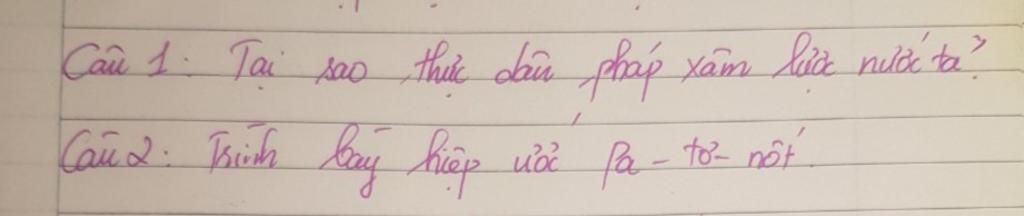 Câu 1: Tại sao thực dân pháp xâm lược nước ta?
Câu 2: Trình bày hiệp ước Pa-tơ-nốt.